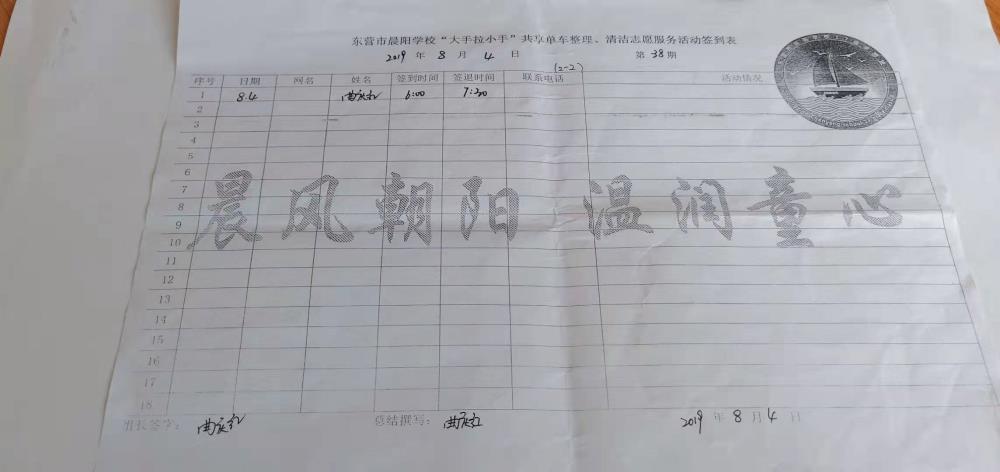 东营市晨阳学校“大手拉小手”共享单车整理、清洁志愿服务活动签到表
2019 年 8 月 4 日 第 38 期
(2-2)
序号 日期 网名 姓名 签到时间 签退时间 联系电话 活动情况
1 8.4 6:00 7:30
2
3
4
5
6
7
8
9
10
11
12
13
14
15
16
17
18
晨风朝阳 温润童心
班长签字: 总结撰写: 2019 年 8 月 4 日